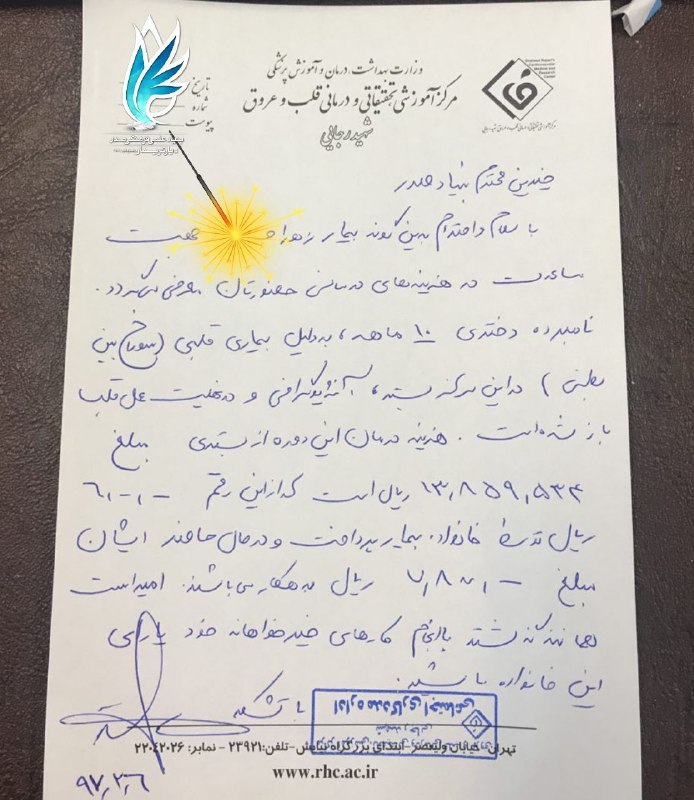 وزارت بهداشت، درمان و آموزش پزشکی
مرکز آموزشی، تحقیقاتی و درمانی قلب و عروق
شهید رجایی
تاریخ
شماره
پیوست
خیرین محترم بنیاد حیدر
با سلام و احترام بدین گونه بیمار زهرا جهت
مساعدت در هزینه‌های درمانی حضورتان معرفی می‌گردد.
نامبرده دختری ۱۰ ماهه، به دلیل بیماری قلبی (سوراخ بین
بطنی) در این مرکز بستری، آنژیوگرافی و در نهایت عمل قلب
باز شده است. هزینه درمان این دوره از بستری مبلغ
۱۳,۸۵۹,۵۳۴ ریال است که از این رقم
ریال توسط خانواده بیمار پرداخت و در حال حاضر ایشان
مبلغ ریال بدهکار می‌باشند. امید است
همانند گذشته با انجام کارهای خیرخواهانه خود یاری
این خانواده باشید.
با تشکر
اداره مددکاری اجتماعی
تهران- خیابان ولیعصر- ابتدای بزرگراه نیایش- تلفن: ۲۳۹۲۱ - نمابر: ۲۲۰۴۲۰۲۶
www.rhc.ac.ir
۹۷,۲,۶